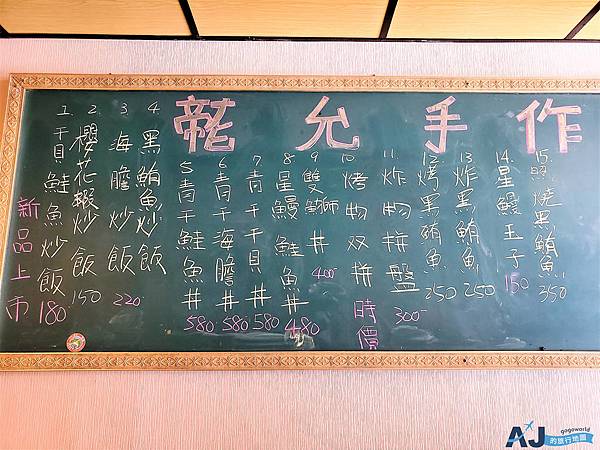 龍允手作
新品上市
1. 干貝鮭魚炒飯 180-
2. 櫻花蝦炒飯 150
3. 海膽炒飯 220-
4. 黑鮪魚炒飯
5. 青干鮭魚丼 580
6. 青干海膽丼 580
7. 青干干貝丼 580
8. 星鰻鮭魚丼 480
9. 雙鰤丼 400-
10. 烤物双拼 時價
11. 炸物拼盤 300-
12. 烤黑鮪魚 250
13. 炸黑鮪魚 250
14. 星鰻玉子 150
15. 照燒黑鮪魚 350
AJ gogoworld
的旅行地圖